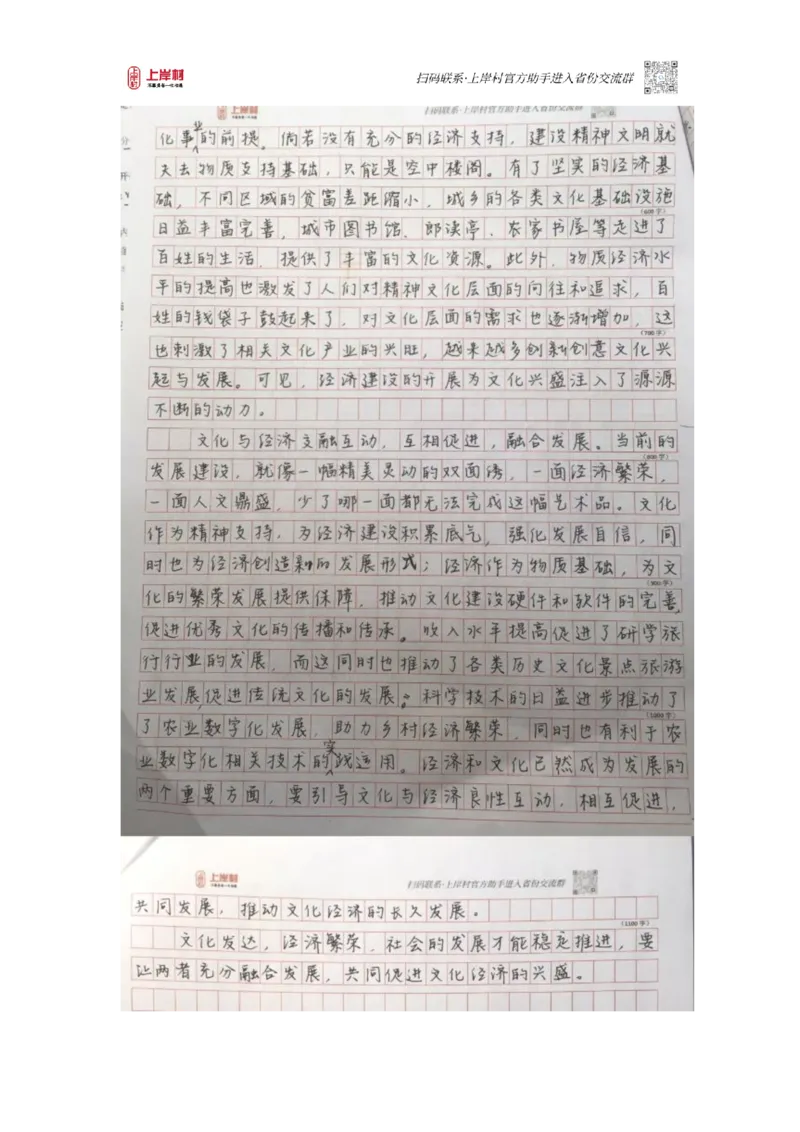 上岸村
扫码联系·上岸村官方助手进入省份交流群
上岸村
扫码联系·上岸村官方助手进入省份交流群
化事业的前提。倘若没有充分的经济支持，建设精神文明就
失去物质支持基础，只能是空中楼阁。有了坚实的经济基
础，不同区域的贫富差距缩小，城乡的各类文化基础设施
(600字)
日益丰富完善，城市图书馆、郎读亭、农家书屋等走进了
百姓的生活，提供了丰富的文化资源。此外，物质经济水
平的提高也激发了人们对精神文化层面的向往和追求，百
姓的钱袋子鼓起来了，对文化层面的需求也逐渐增加，这
(700字)
也刺激了相关文化产业的兴旺，越来越多创新创意文化兴
起与发展。可见，经济建设的开展为文化兴盛注入了源源
不断的动力。
文化与经济交融互动，互相促进，融合发展。当前的
(800字)
发展建设，就像一幅精美灵动的双面绣，一面经济繁荣，
一面人文鼎盛，少了哪一面都无法完成这幅艺术品。文化
作为精神支持，为经济建设积累底气，强化发展自信，同
时也为经济创造新的发展形式；经济作为物质基础，为文
(900字)
化的繁荣发展提供保障，推动文化建设硬件和软件的完善，
促进优秀文化的传播和传承。收入水平提高促进了研学旅
行行业的发展，而这同时也推动了各类历史文化景点旅游
业发展，促进传统文化的发展。科学技术的日益进步推动了
(1000字)
了农业数字化发展，助力乡村经济繁荣，同时也有利于农
业数字化相关技术的实践运用。经济和文化已然成为发展的
两个重要方面，要引导文化与经济良性互动，相互促进，
上岸村
扫码联系·上岸村官方助手进入省份交流群
共同发展，推动文化经济的长久发展。
(1100字)
文化发达，经济繁荣，社会的发展才能稳定推进，要
让两者充分融合发展，共同促进文化经济的兴盛。